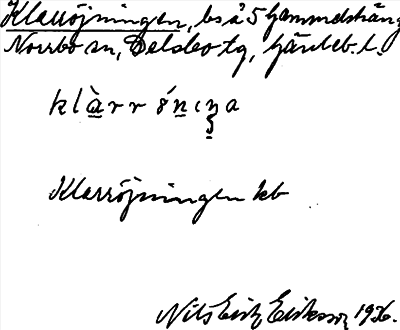 Klarröjningen, bs å 5 Gammelsträng
Norrbo sn, Delsbo tg, Gävleb. l.
klàrr ónıŋa
Klarröjningen kb
Nils Erik Eriksson 1936.